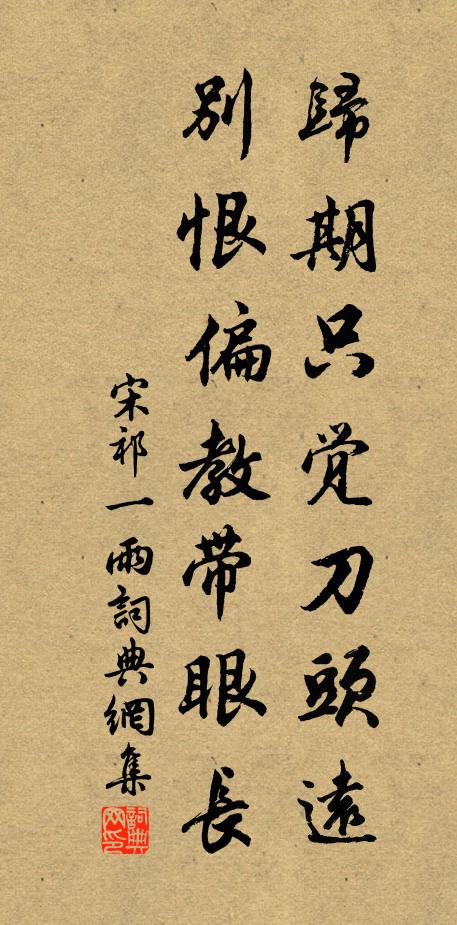 歸期只覺刀頭遠
別恨偏教帶眼長
宋祁一兩詞典網集
詞典
网印